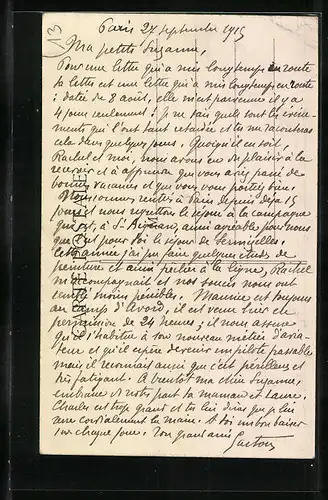 13
Paris 27 septembre 1915
Ma petite Suzanne,
Pour une lettre qui a mis longtemps en route
ta lettre est une lettre qui a mis longtemps en route
: datée du 8 août, elle m'est parvenue il y a
4 jours seulement ! Je ne sais quels sont les évène-
ments qui l'ont tant retardée et tu me raconteras
cela dans quelques jours. Quoiqu'il en soit,
Rachel et moi, nous avons eu du plaisir à la
recevoir et à apprendre que vous aviez passé de
bonnes vacances et que vous vous portiez bien.
Nous sommes rentrés à Paris depuis déjà 15
jours et nous regrettons le séjour à la campagne
qui est, à St aussi agréable pour nous
que pour toi le séjour de
Cette année j'ai pu faire quelques études de
peinture et aussi pêcher à la ligne, Rachel
m'accompagnait et nos soucis nous ont
semblé moins pénibles. Maurice est toujours
au camp d'Avord, il est venu hier en
permission de 24 heures ; il nous assure
qu'il s'habitue à son nouveau métier d'avia-
teur et qu'il espère devenir un pilote passable
mais il reconnaît aussi que c'est périlleux et
très fatigant. A bientôt ma chère Suzanne,
embrasse de notre part ta maman et Laure.
Charles est trop grand et tu lui diras que je lui
serre cordialement la main. A toi un bon baiser
sur chaque joue. Ton grand ami
Gaston
CARTE POSTALE